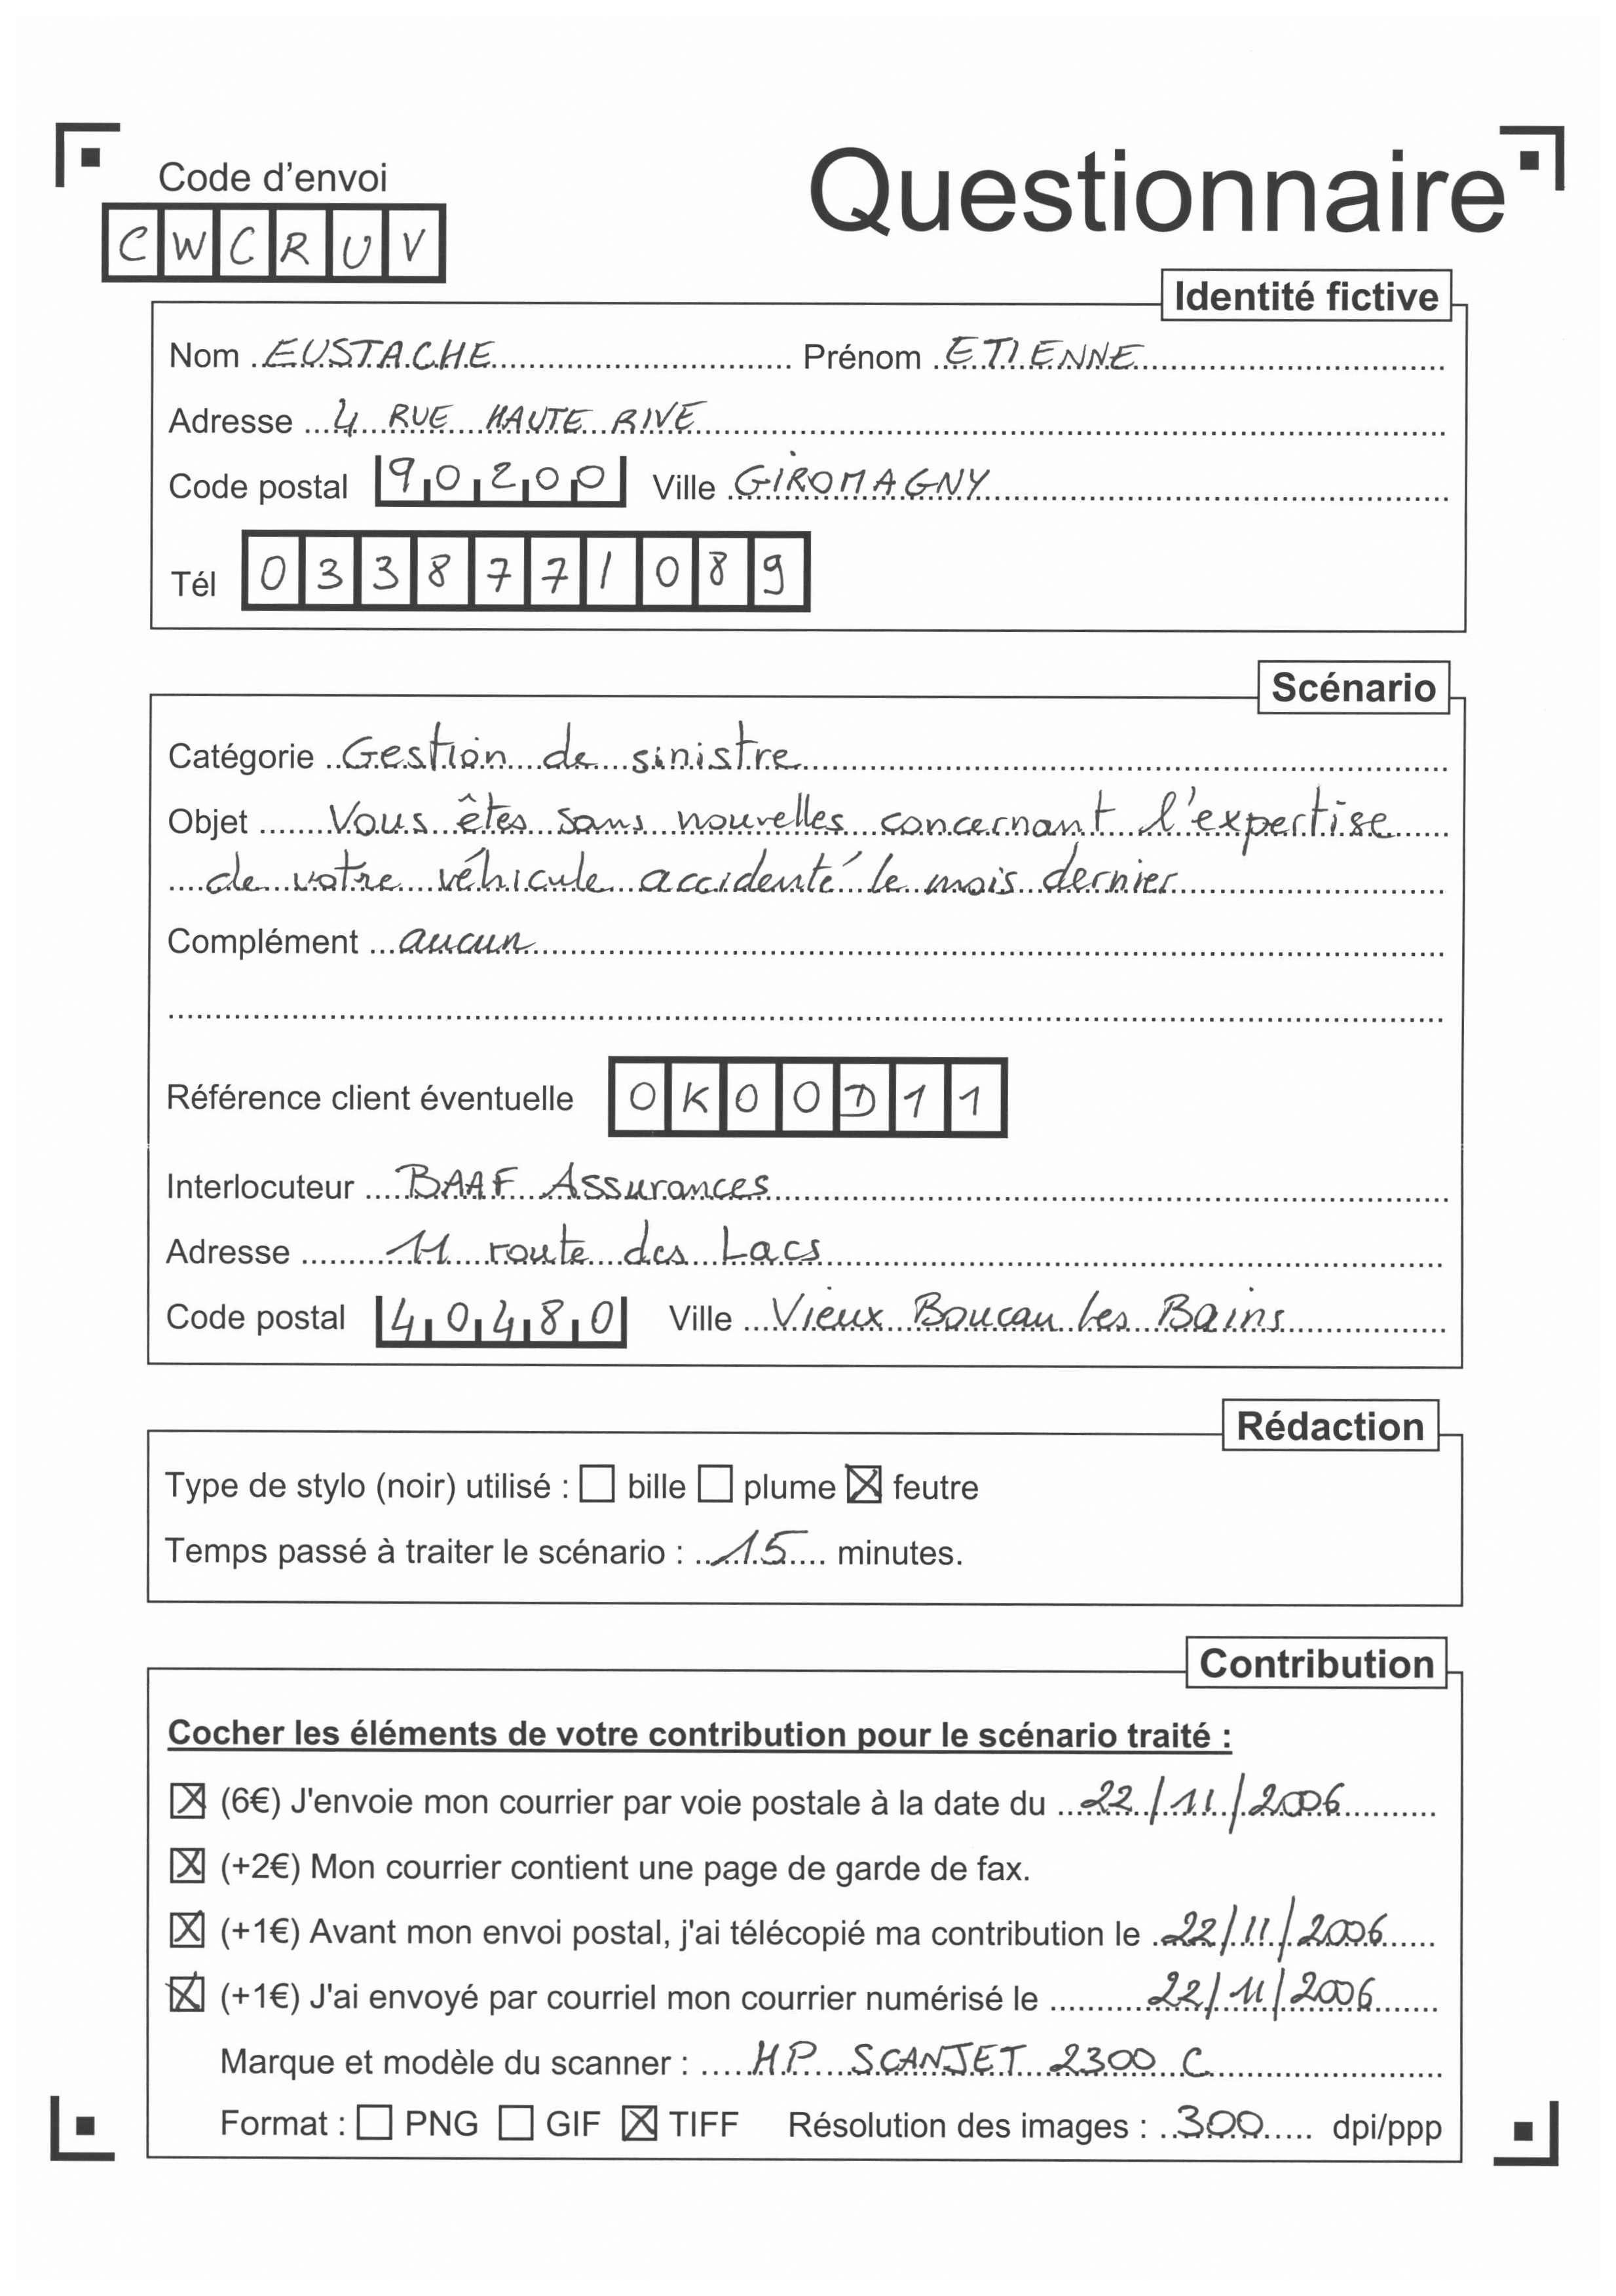 Code d'envoi
Questionnaire
CWCRUV
Identité fictive
Nom EUSTACHE Prénom ETIENNE
Adresse 4 RUE HAUTE RIVE
Code postal 90200 Ville GIROMAGNY
Tél 0338771089
Scénario
Catégorie Gestion de sinistre
Objet Vous êtes sans nouvelles concernant l'expertise
de votre véhicule accidenté le mois dernier
Complément aucun
Référence client éventuelle OK00D11
Interlocuteur BAAF Assurances
Adresse 11 route des Lacs
Code postal 40480 Ville Vieux Boucau les Bains
Rédaction
Type de stylo (noir) utilisé : ☐ bille ☐ plume ☒ feutre
Temps passé à traiter le scénario : 15 minutes.
Contribution
Cocher les éléments de votre contribution pour le scénario traité :
☒ (6€) J'envoie mon courrier par voie postale à la date du 22/11/2006
☒ (+2€) Mon courrier contient une page de garde de fax.
☒ (+1€) Avant mon envoi postal, j'ai télécopié ma contribution le 22/11/2006
☒ (+1€) J'ai envoyé par courriel mon courrier numérisé le 22/11/2006
Marque et modèle du scanner : HP SCANJET 2300 C
Format : ☐ PNG ☐ GIF ☒ TIFF Résolution des images : 300 dpi/ppp